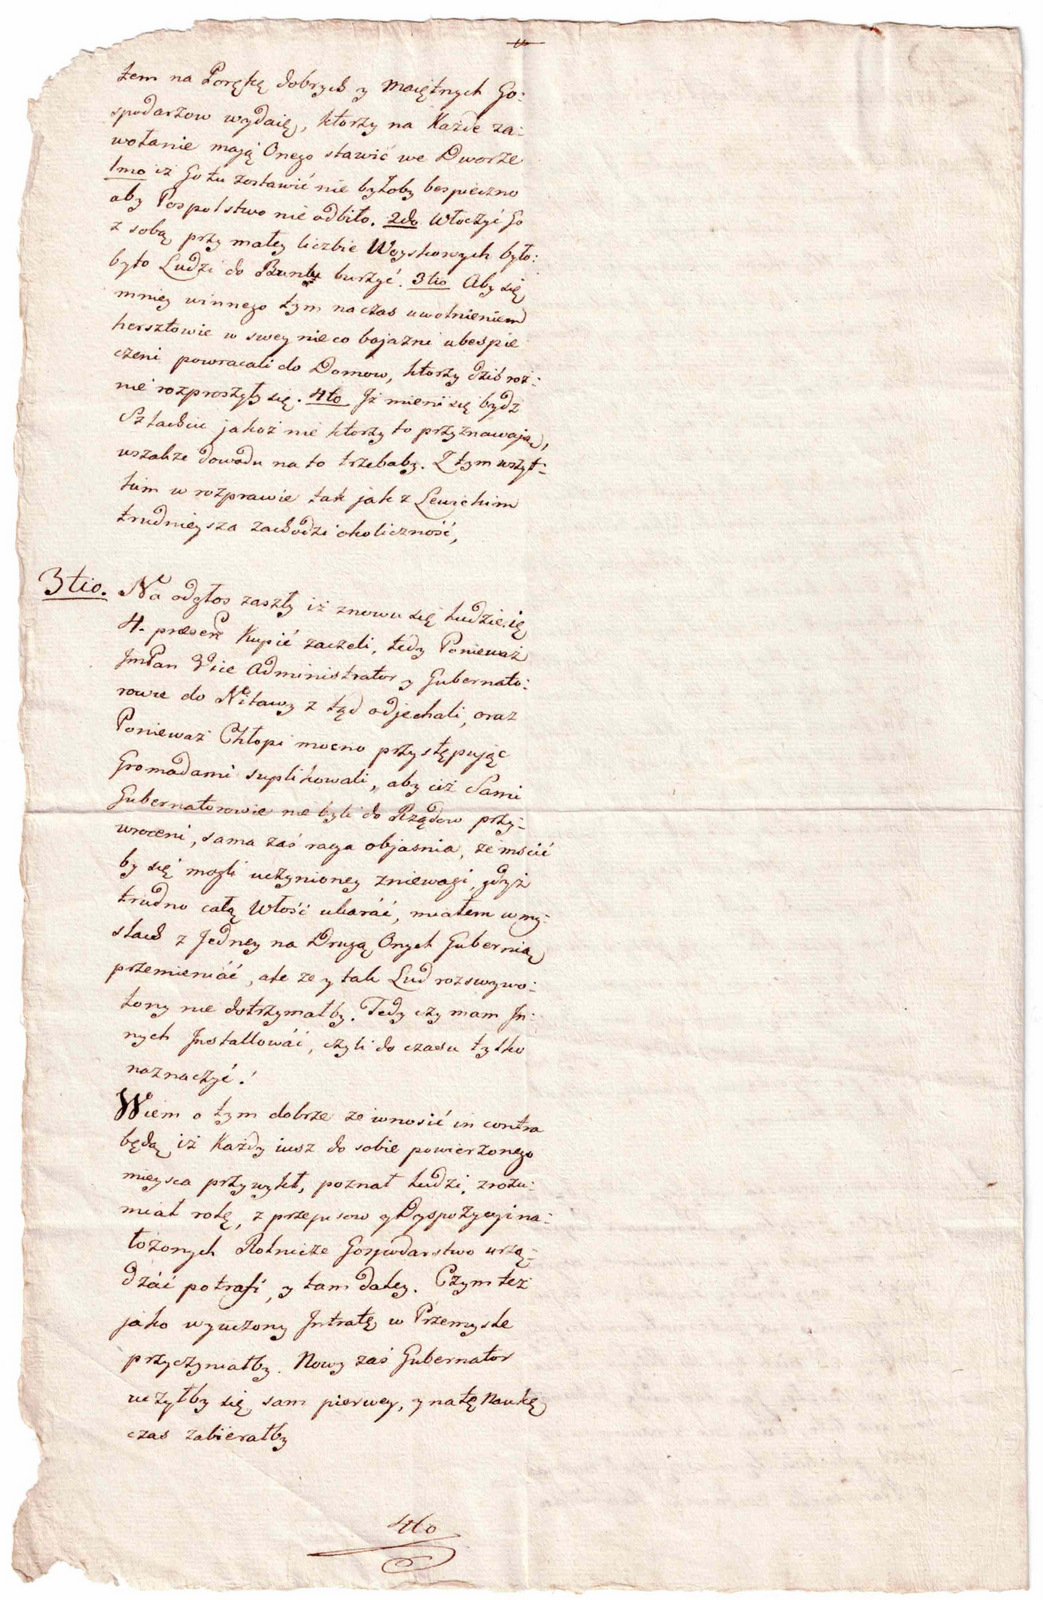 tem na Porękę dobrych y Maiętnych Go:
spodarzow wydaię, ktorzy na Każde za:
wołanie mają Onego stawić we Dworze
1mo iż Go tu zostawić nie byłoby bespieczno
aby Pospolstwo nie odbiło. 2do Włoczyć Go
z sobą przy małey liczbie Woyskowych było:
było Ludzi do Buntu burzyć. 3tio Aby się
mniey winnego tym na czas uwolnieniem
hersztowie w swey nieco bojazni ubespie
czeni powracali do Domow, ktorzy dziś roż:
nie rozproszyły się. 4to Iż mieni się bydź
Szlachcic jakoż nie ktorzy to przyznawają,
wszakze dowodu na to trzebaby. Z tym wszyt:
kim w rozprawie tak jak z Lewickim
trudnieysza zachodzi okoliczność,
3tio. Na odgłos zaszły iż znowu się ludzie
4. præsent Kupić zaczeli, tedy Ponieważ
ImPan Vice Administrator y Gubernato:
rowie do Nitawy z tąd odjechali, oraz
Ponieważ Chłopi mocno przystępując
Gromadami suplikowali, aby ciż Sami
Gubernatorowie nie byli do Rządow przy:
wroceni, sama zaś racya objasnia, że mścić
by się mogli uczynioney zniewagi, gdyż
trudno całą Włość ukarać, miałem w my:
slach z Jedney na Drugą Onych Gubernią
przemieniać, ale że y tak Lud rozswywo:
lony nie dotrzymałby. Tedy czy mam In:
nych Installować, czyli do czasu tylko
naznaczyć!
Wiem o tym dobrze że wnosić in contra
będą iż Każdy iusz do sobie powierzonego
mieysca przywykł, poznał ludzi, zrozu:
miał rolę, z przepisow y Dyspozycyi na:
łożonych Rolnicze Gospodarstwo urzą:
dzać potrafi, y tam daley. Czym też
jako wyuczony Intratę w Przemysle
przyczyniałby. Nowy zaś Gubernator
uczyłby się sam pierwey, y na tę Naukę
czas zabierałby
4to